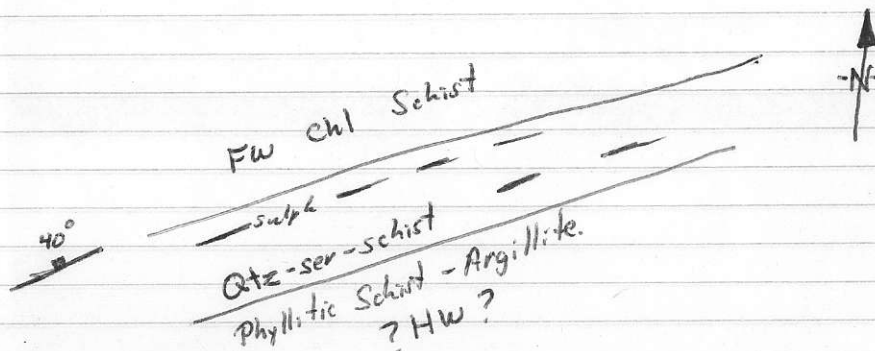 -N-
FW Chl Schist
sulph
40°
Qtz-ser-schist
Phyllitic Schist - Argillite.
? HW ?